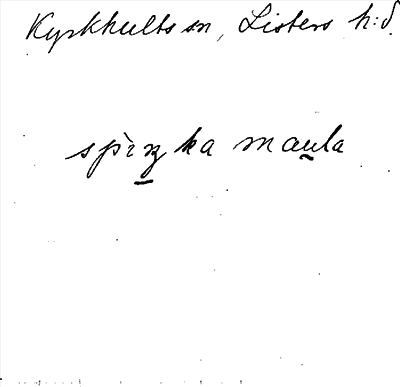 Kyrkhults sn, Listers h:d
spìŋ̠ka mau̯la